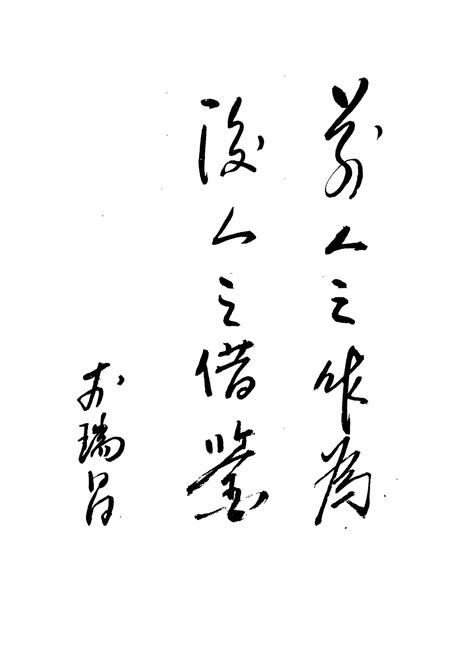 前人之作為
後人之借鉴
瑞昌